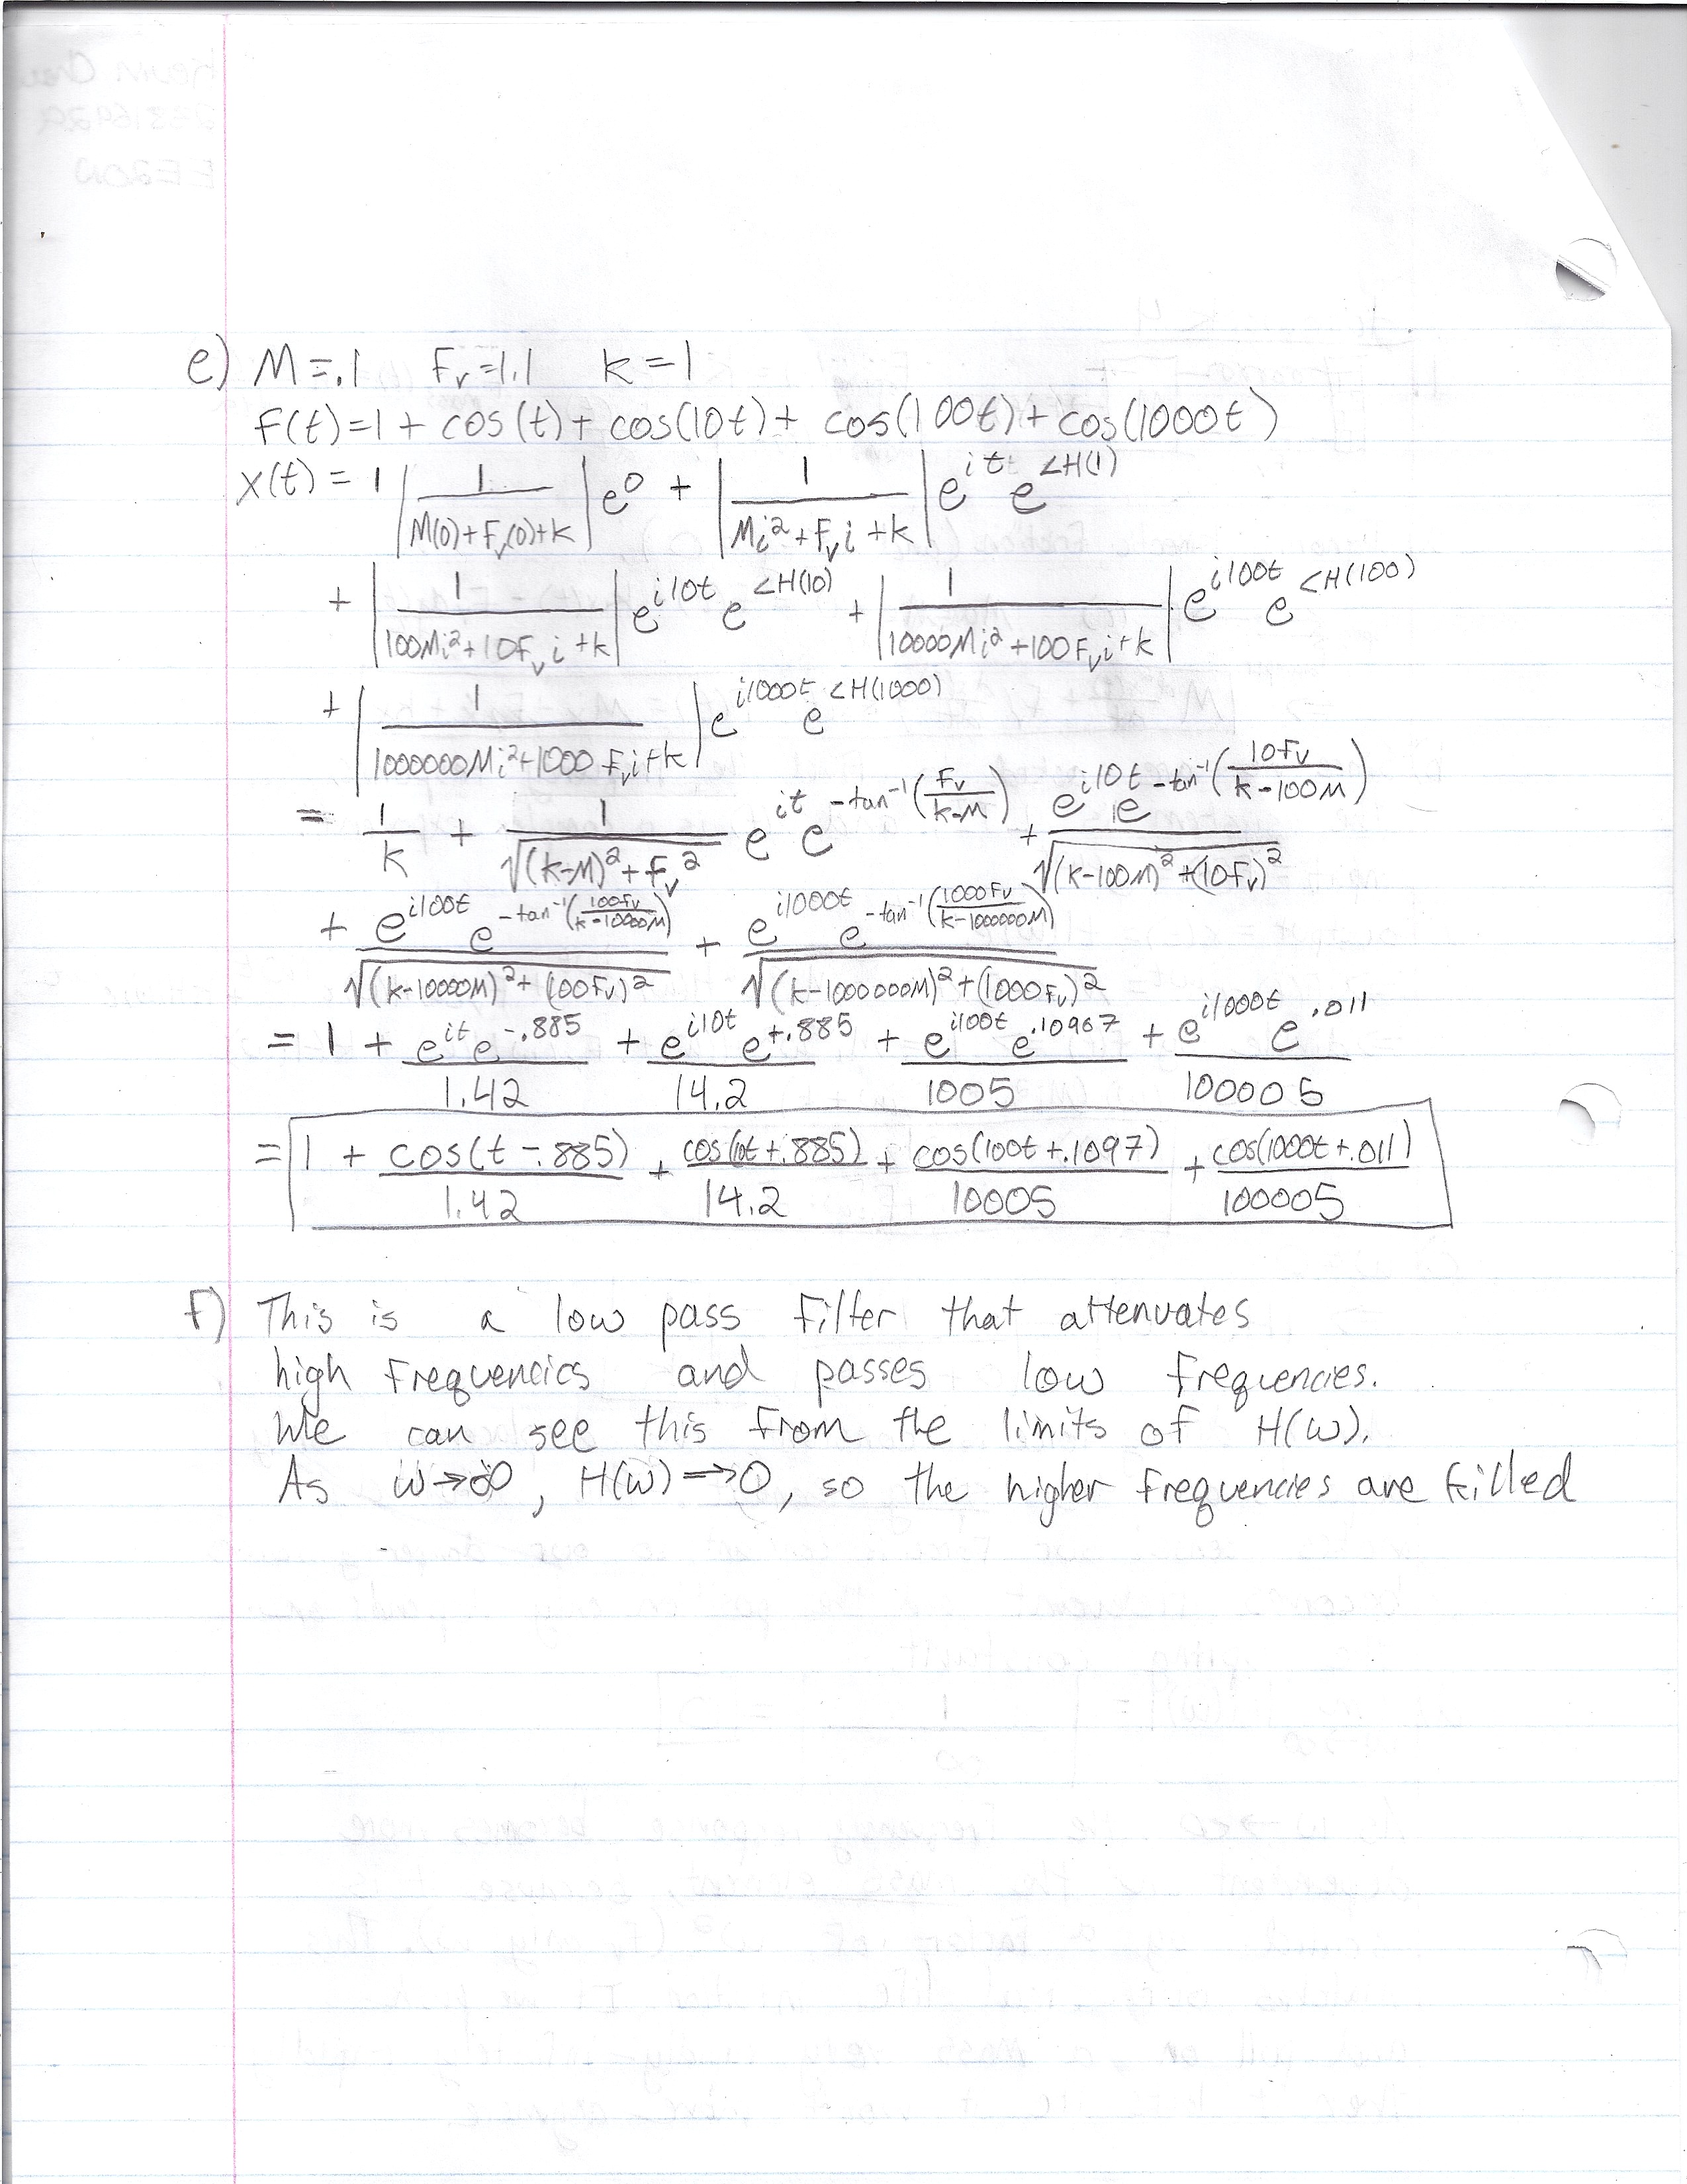 e) M=.1 Fv=1.1 k=1
F(t)=1+ cos(t)+ cos(10t)+ cos(100t)+cos(1000t)
x(t) = 1 |1/(M(0)+Fv(0)+k)| e^0 + |1/(Mi²+Fvi+k)| e^(it) e^(∠H(1))
+ |1/(100Mi²+10Fvi+k)| e^(i10t) e^(∠H(10)) + |1/(10000Mi²+100Fvi+k)| e^(i100t) e^(∠H(100))
+ |1/(1000000Mi²+1000Fvi+k)| e^(i1000t) e^(∠H(1000))
= 1/k + 1/√((k-M)²+Fv²) e^(it) e^(-tan⁻¹(Fv/(k-M))) + e^(i10t) e^(-tan⁻¹(10Fv/(k-100M)))/√((k-100M)²+(10Fv)²)
+ e^(i100t) e^(-tan⁻¹(100Fv/(k-10000M)))/√((k-10000M)²+(100Fv)²) + e^(i1000t) e^(-tan⁻¹(1000Fv/(k-1000000M)))/√((k-1000000M)²+(1000Fv)²)
= 1 + e^(it) e^(-.885)/1.42 + e^(i10t) e^(+.885)/14.2 + e^(i100t) e^(.10967)/1005 + e^(i1000t) e^(.011)/100005
= 1 + cos(t-.885)/1.42 + cos(10t+.885)/14.2 + cos(100t+.1097)/10005 + cos(1000t+.011)/100005
f) This is a low pass filter that attenuates
high frequencies and passes low frequencies.
We can see this from the limits of H(ω).
As ω→∞, H(ω)→0, so the higher frequencies are killed